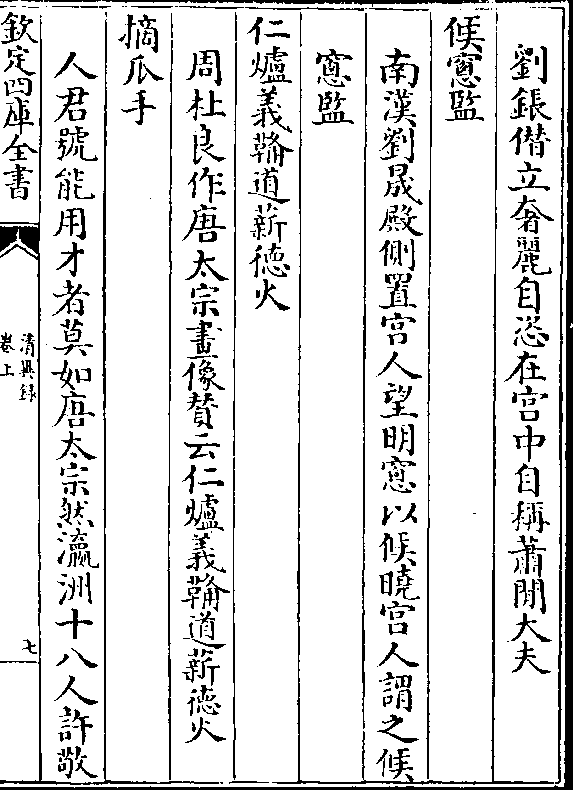 劉鋹僣立奢麗自恣在宫中自稱蕭閒大夫
候窻監
南漢劉晟殿側置宫人望明窻以候曉宫人謂之候
窻監
仁爐義鞴道薪徳火
周杜良作唐太宗畫像賛云仁爐義鞴道薪徳火
摘瓜手
人君號能用才者莫如唐太宗然瀛洲十八人許敬
欽定四庫全書
清異録
卷上
七